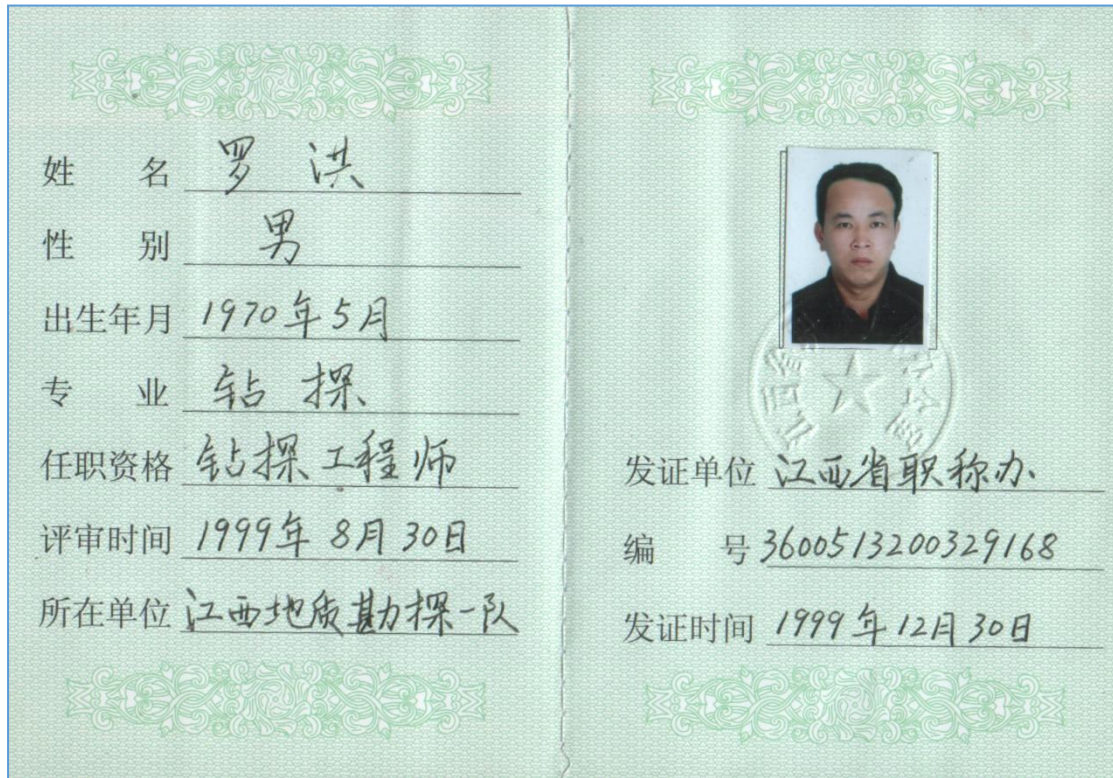 姓 名 罗 洪
性 别 男
出生年月 1970年5月
专 业 钻 探
任职资格 钻探工程师
评审时间 1999年8月30日
所在单位 江西地质勘探一队
发证单位 江西省职称办
编 号 3600513200329168
发证时间 1999年12月30日